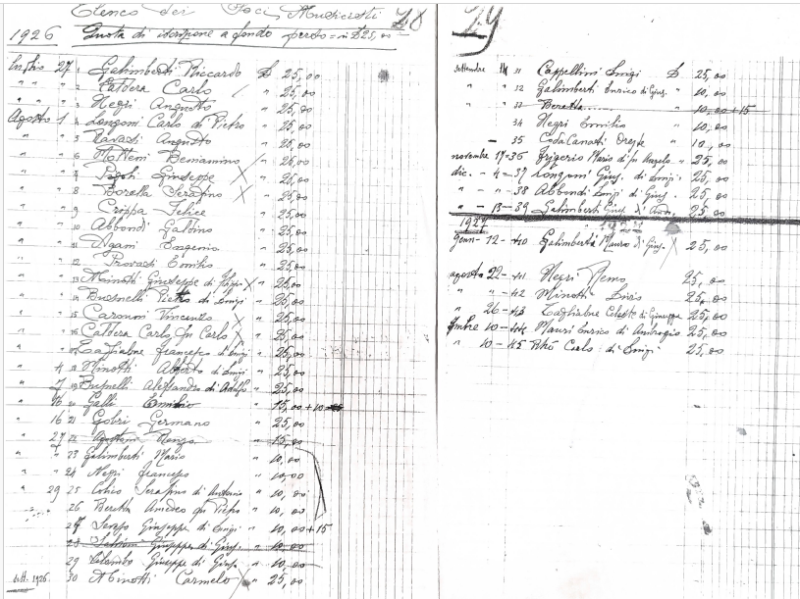 Elenco dei Soci Musicanti 28
1926 Quota di iscrizione a fondo perso = in £ 25,00
luglio 27 1 Galimberti Riccardo £ 25,00
" " 2 Caldera Carlo / " 25,00
" " 3 Negri Augusto " 25,00
Agosto 1 4 Longoni Carlo di Pietro " 25,00
" " 5 Ravasi Augusto " 25,00
" " 6 Molteni Beniamino " 25,00
" " Giuseppe X " 25,00
" " 8 Borella Serafino X " 25,00
" " 9 Crippa Felice " 25,00
" " 10 Abbondi Galdino " 25,00
" " 11 Eugenio " 25,00
" " 12 Provasi Emilio " 25,00
" " 13 Minotti Giuseppe di X " 25,00
" " 14 Busnelli Pietro di Luigi " 25,00
" " 15 Caronni Vincenzo X " 25,00
" " 16 Caldera Carlo fu Carlo X " 25,00
" " Tagliabue Francesco di Luigi " 25,00
" 4 18 Minotti Alberto di Luigi " 25,00
" 7 19 Busnelli Alessandro di Adolfo " 25,00
" 16 20 Galli Emilio " 15,00 + 10
" 16 21 Gobri Germano " 25,00
" 27 22 Renzo " 15,00
" " 23 Galimberti Mario " 10,00
" " 24 Negri Francesco " 10,00
" 29 25 Serafino di Antonio " 10,00
26 Beretta Amedeo fu Pietro " 10,00
27 Giuseppe di Luigi " 10,00 + 15
28 Giuseppe di Gius. " 10,00
29 Colombo Giuseppe di Gius. " 10,00
sett. 1926 30 Minotti Carmelo X " 25,00
29
settembre 11 Cappellini Luigi £ 25,00
" " 12 Galimberti Enrico di Gius. " 10,00
" 33 Beretta " 10,00 + 15
34 Negri Emilio " 10,00
- 35 Oreste " 10,00
novembre 17-36 Frigerio Mario di fu Angelo " 25,00
dic. " 4-37 Longoni Gius. di Luigi " 25,00
" - " 38 Abbondi Luigi di Gius. " 25,00
" - 13-39 Galimberti Gius. di " 25,00
1927
genn - 12 - 40 Galimberti Mauro di Gius. X " 25,00
agosto 22 - 41 Negri Remo 25,00
" " - 42 Minotti Livio 25,00
" 26 - 43 Tagliabue Celeste di Giuseppe 25,00
10 - 44 Mauri Enrico di Ambrogio 25,00
" 10 - 45 Carlo di Luigi 25,00